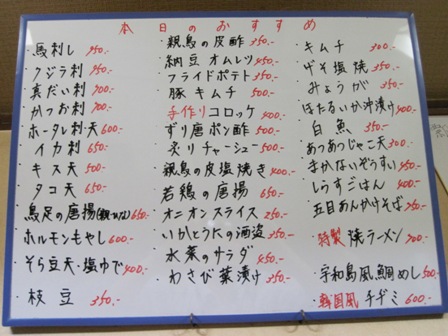 本日のおすすめ
馬刺し 950.-
クジラ刺 950.-
真だい刺 900.-
かつお刺 900.-
ホータレ刺・天 600.-
イカ刺 650.-
キス天 500.-
タコ天 650.-
鳥足の唐揚(親・ひな) 650.-
ホルモンもやし 600.-
そら豆天・塩ゆで 400.-
枝豆 350.-
親鳥の皮酢 350.-
納豆オムレツ 450.-
フライドポテト 350.-
豚キムチ 500.-
手作りコロッケ 400.-
ずり唐ポン酢 500.-
炙りチャーシュー 500.-
親鳥の皮塩焼き 400.-
若鶏の唐揚 650.-
オニオンスライス 250.-
いかとうにの酒盗 350.-
水菜のサラダ 450.-
わさび葉漬け 350.-
キムチ 300.-
げそ塩焼 350.-
みょうが 350.-
ほたるいか沖漬け 400.-
白魚 350.-
あつあつじゃこ天 300.-
まかないぞうすい 450.-
しらすごはん 400.-
五目あんかけそば 750.-
特製 焼ラーメン 700.-
宇和島風鯛めし 500.-
韓国風 チヂミ 600.-